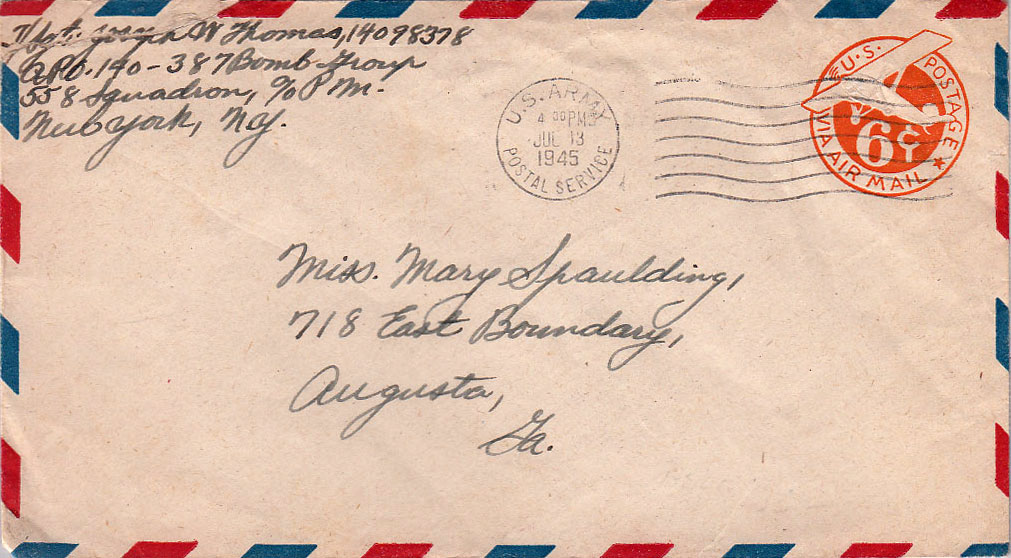 T/Sgt. Joseph W Thomas, 14098378
A.P.O. 140 - 387 Bomb Group
558 Squadron, c/o P.M.
New York, N.Y.
U.S. ARMY
4 00 PM
JUL 13
1945
POSTAL SERVICE
U.S. POSTAGE
6¢
VIA AIR MAIL
Miss. Mary Spaulding,
718 East Boundary,
Augusta,
Ga.